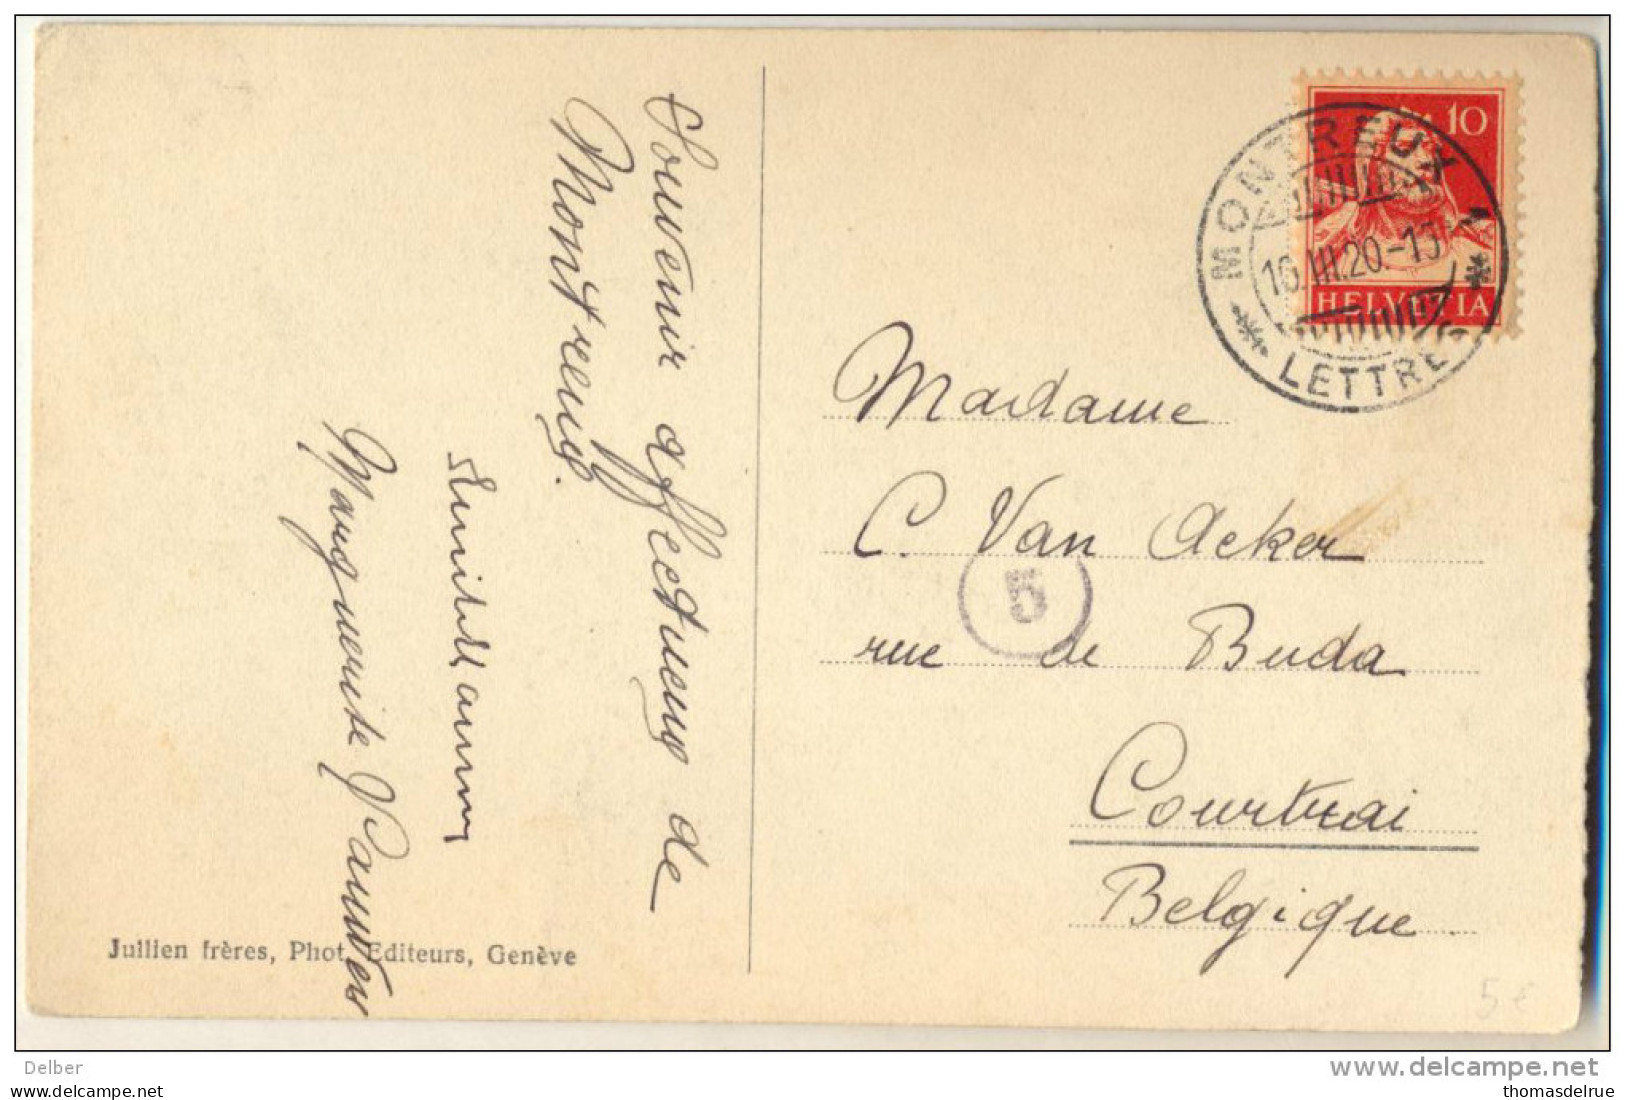 Souvenir affectueux de
Montreux.
Marguerite Vauwers
Jullien frères, Phot. Editeurs, Genève
10
HELVETIA
MONTREUX 1
16.III.20-13
LETTRES
Madame
C. Van Acker
5
rue de Buda
Courtrai
Belgique
5 €
Delber
www.delcampe.net
thomasdelrue